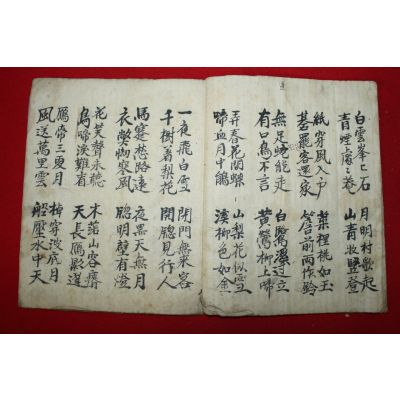 白雲峯〻石 月明村歌起
青煙處〻巷 山青牧竪登
紙穿風入戶 葉裡桃如玉
碁罷客還家 簷前雨作鈴
無足蛇能走 白鷺溪邊立
有口鳥不言 黃鶯柳上啼
弄春花間蝶 山梨花似雪
啼血月中鵑 溪柳色如金
一夜飛白雪 閉門無來客
千樹着梨花 開牕見行人
馬蹇愁路遠 夜黑天無月
衣弊怕寒風 牕明壁有燈
花笑聲未聽 木落山容瘠
鳥啼淚難看 天長鴈影遲
鴈帶三更月 棹穿波底月
風送萬里雲 船壓水中天